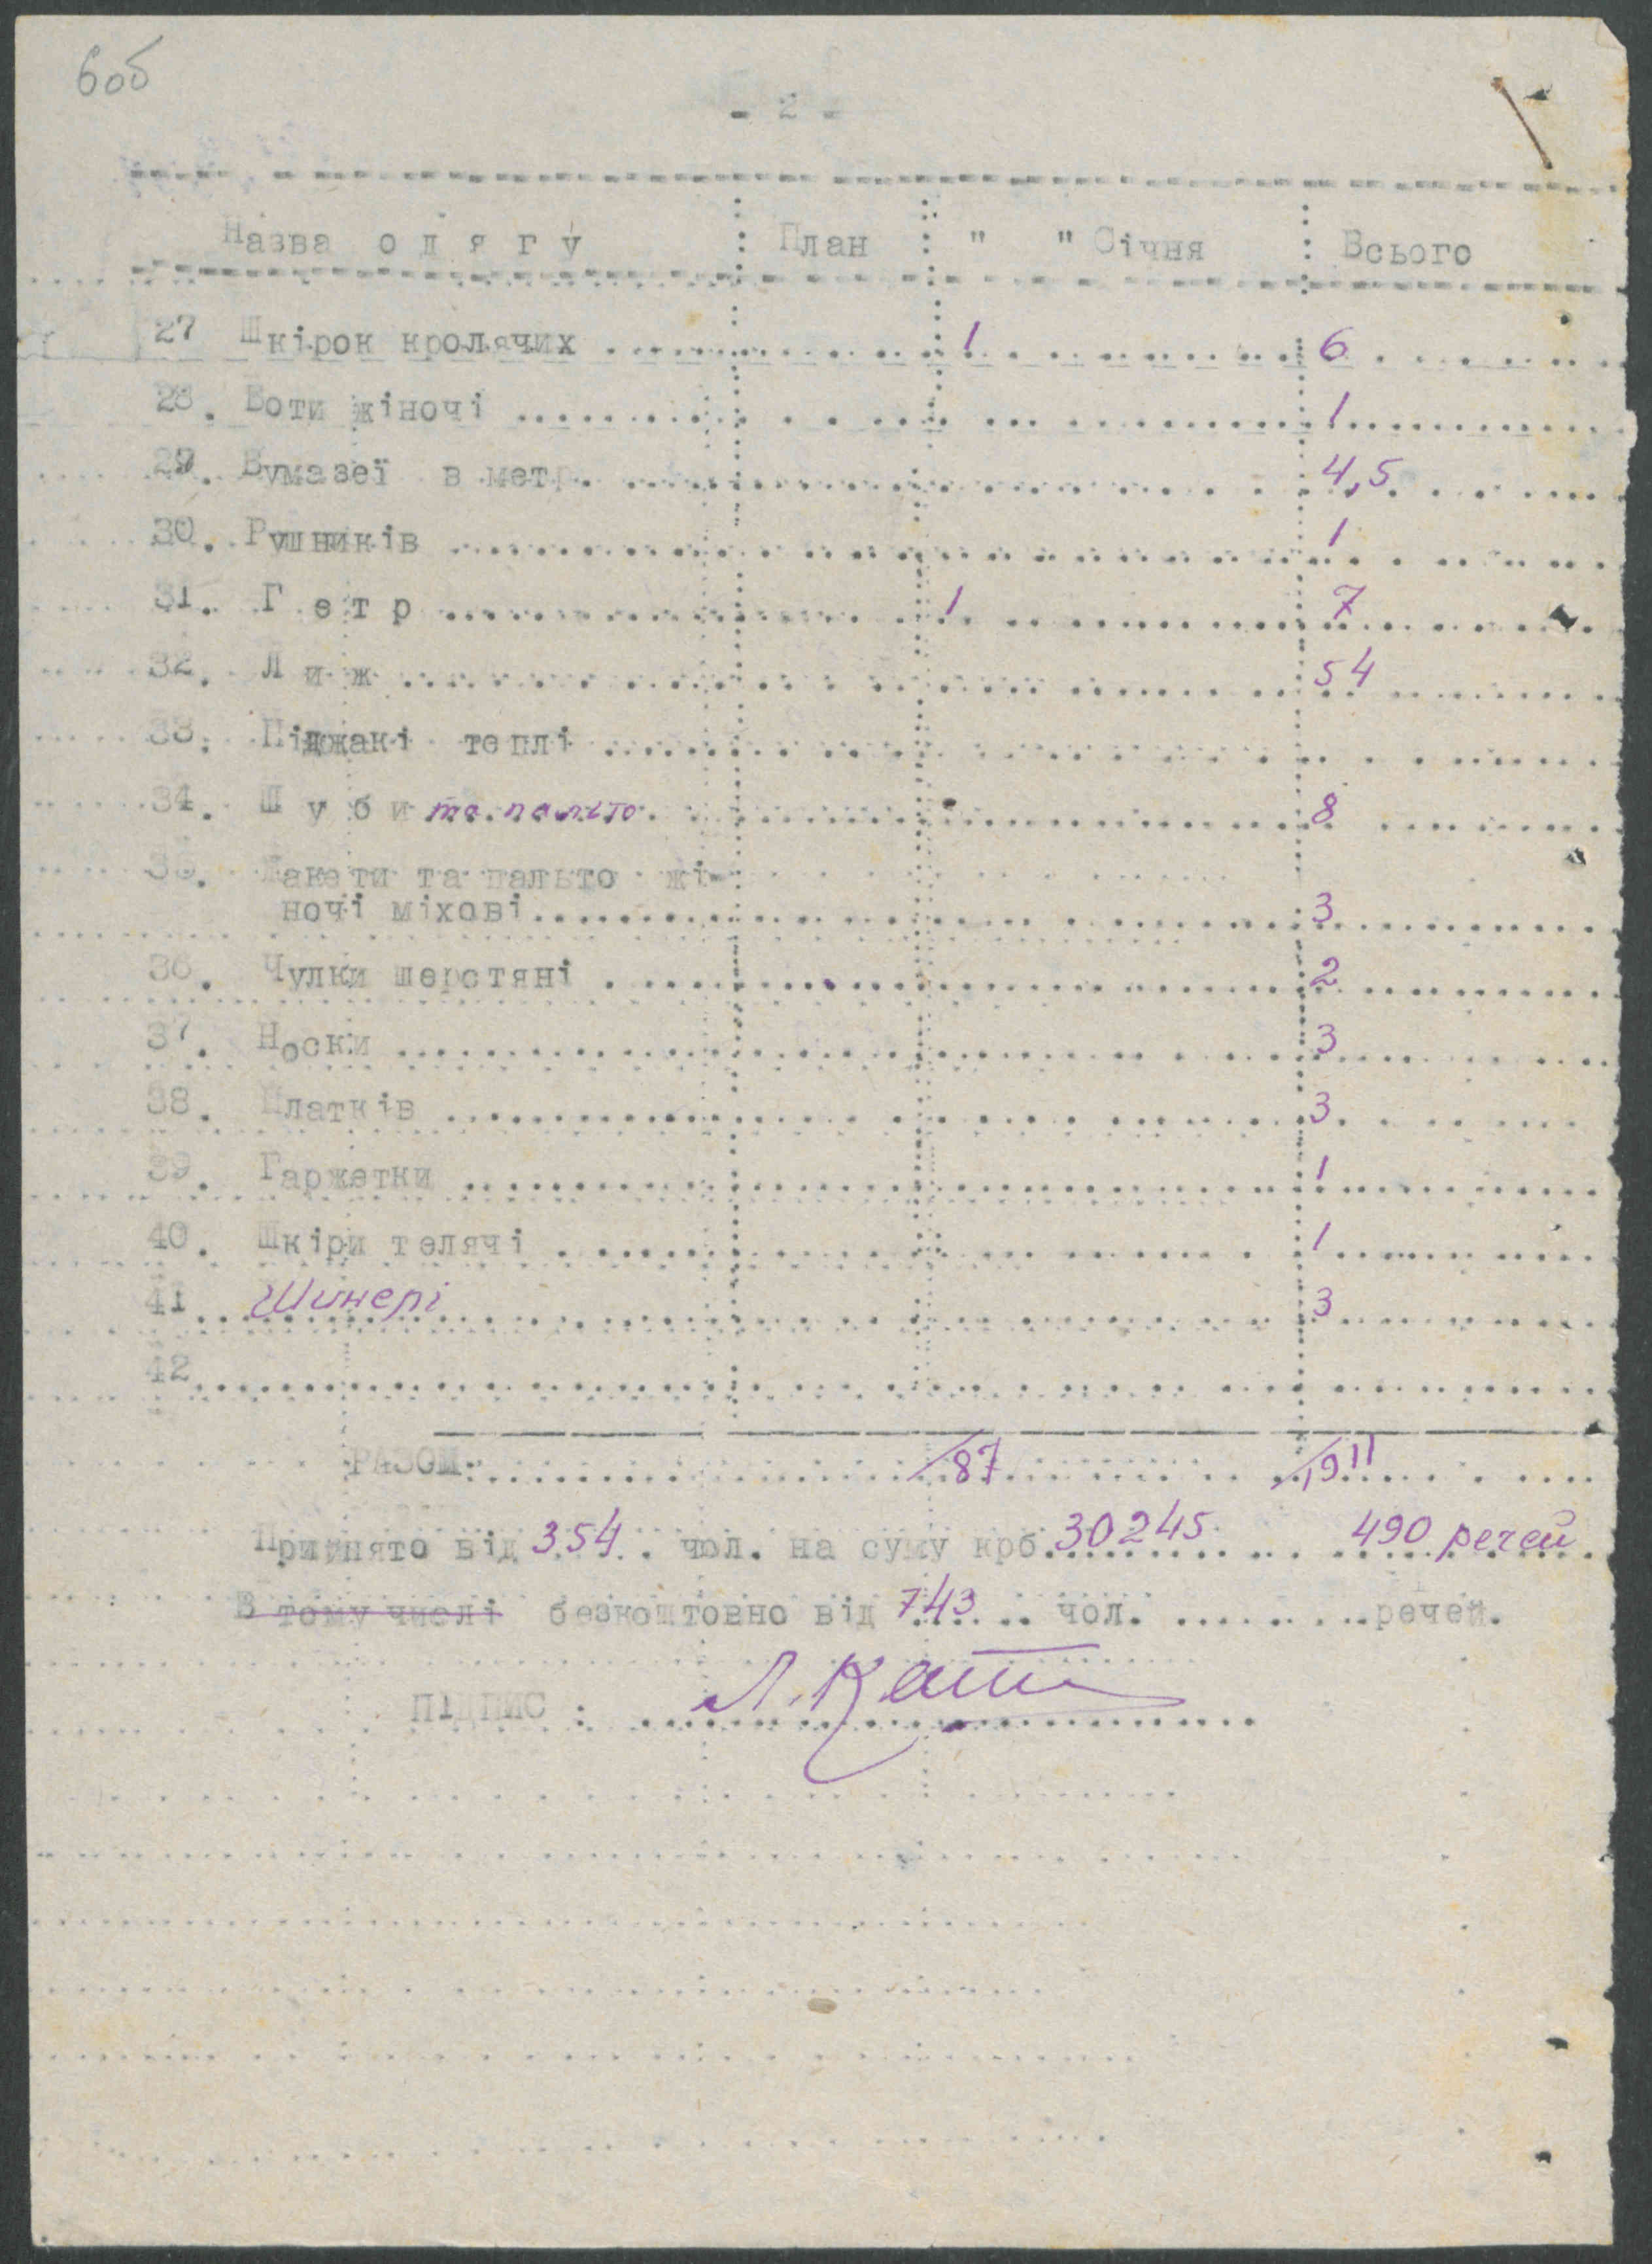 6об
- 2 -
Назва одягу : План : " " Січня : Всього
27 Шкірок кролячих 1 6
28. Боти жіночі 1
29. Бумазеї в метр. 4,5
30. Рушників 1
31. Гетр 1 7
32. Лиж 54
33. Піджакі теплі
34. Шуби та пальто 8
35. Жакети та пальто жі-
ночі міхові 3
36. Чулки шерстяні 2
37. Носки 3
38. Платків 3
39. Гаржетки 1
40. Шкіри телячі 1
41 3
42
РАЗОМ: 87 1911
Прийнято від 354 чол. на суму крб. 30245 490 речей
В тому числі безкоштовно від 743 чол. речей.
ПІДПИС :